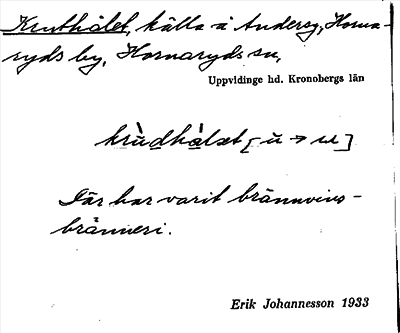 Kruthålet, källa å Andersg, Horna-
ryds by, Hornaryds sn,
Uppvidinge hd. Kronobergs län
krùdhålet [ŭ → ш]
Där har varit brännvins-
bränneri.
Erik Johannesson 1933